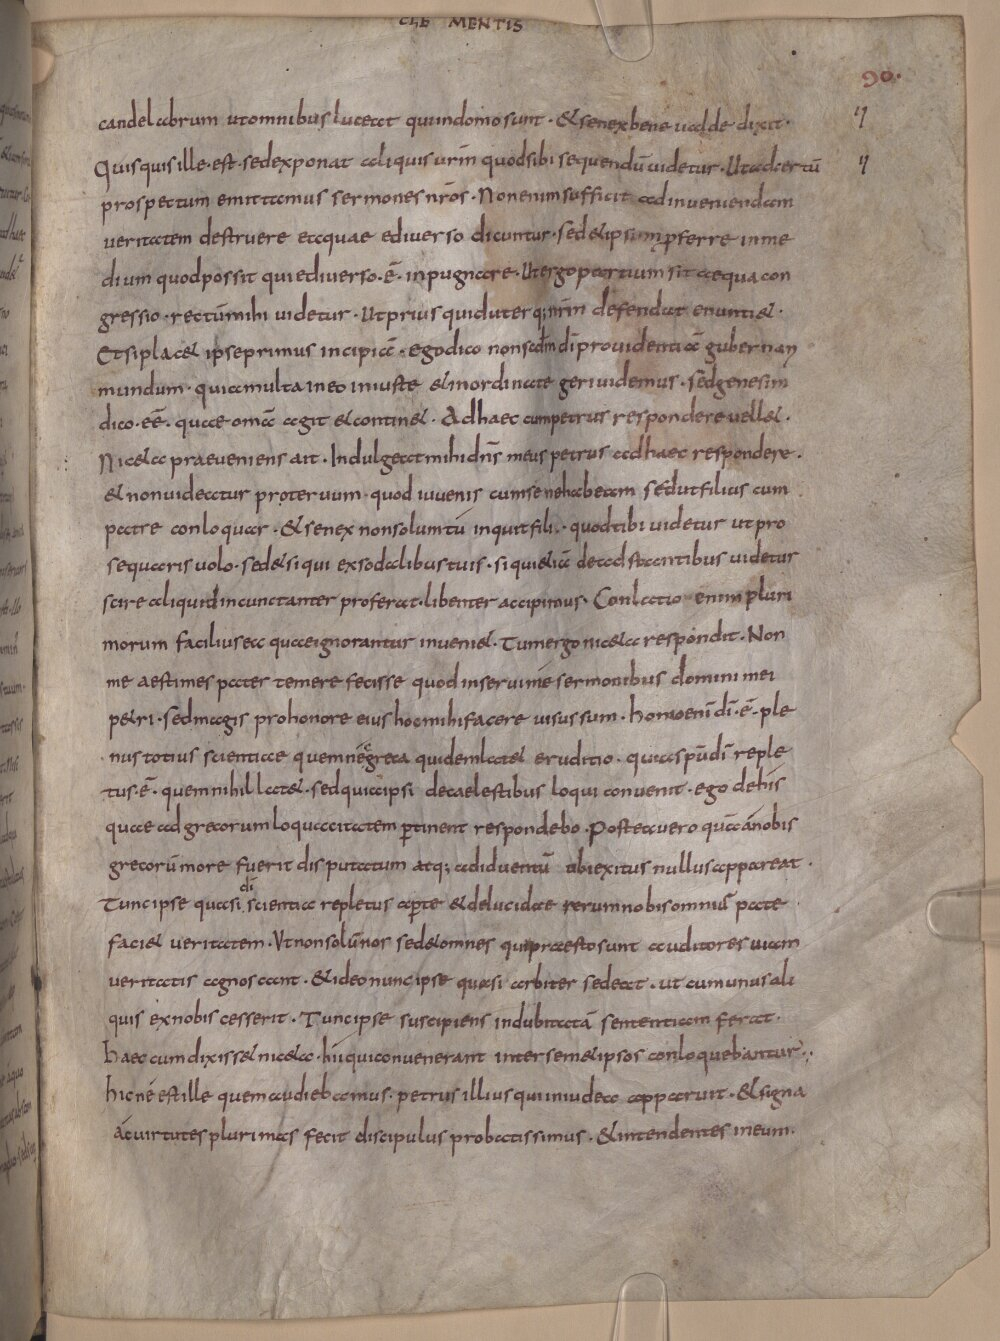 CLE MENTIS
90.
candelabrum utomnibus luceat quiindomo sunt · & senex bene ualde dixit ·
Quisquis ille · est · sed exponat aliquis urm̄ quod sibi sequendū uidetur · Ut ad certū
prospectum emittamus sermones nr̄os · Non enim sufficit ad inueniendam
ueritatem destruere ea quae ediuerso dicuntur · sed & ipsum p̱ferre inme
dium quodpossit qui ediuerso · ē · inpugnare · Ut ergo partium sit aequa con
gressio · rectūmihi uidetur · Ut prius quid uterq; nrm̄ defendat enunti& ·
Etsi plac& ipse primus incipiā · ego dico non scdm di prouidentiā gubernari
mundum · quia multa in eo iniuste & inordinate geri uidemus · sed genesim
dico · eē · quae omā agit & contin& · Ad haec cum petrus respondere uell& ·
Nic&a praeueniens ait · Indulgeat mihi dn̄s meus petrus ad haec respondere ·
& non uideatur proteruum · quod iuuenis cum sene habeam sed ut filius cum
patre conloquar · & senex non solum tū inquit fili · quod tibi uidetur ut pro
sequaris uolo · sed & si qui ex sodalibus tuis · si qui &iā de adstantibus uidetur
scire aliquid incunctanter proferat · libenter accipimus · Conlatio enim pluri
morum facilius ea quae ignorantur inueni& · Tum ergo nic&a respondit · Non
me aestimes pater temere fecisse quod inserui me sermonibus domini mei
p&ri · sed magis pro honore eius hoc mihi facere uisus sum · homo enī di · ē · ple
nus totius scientiae quem nec greca quidem lat& eruditio · quia spū di reple
tus · ē · quem nihil lat& · sed quia ipsi de caelestibus loqui conuenit · ego de his
quae ad grecorum loquacitatem p̱tinent respondebo · Postea uero quā a nobis
grecorū more fuerit disputatum atq; ad id uentū ubi exitus nullus appareat ·
Tunc ipse quasi di scientia repletus ap̱te & delucidae rerum nobis omniū pate
faci& ueritatem · Ut non solū nos sed & omnes qui praesto sunt auditores uiam
ueritatis agnoscant · & ideo nunc ipse quasi arbiter sedeat · ut cum unus ali
quis ex nobis cesserit · Tunc ipse suscipiens indubitatā sententiam ferat ·
Haec cum dixiss& nic&a · hii qui conuenerant inter sem&ipsos conloquebantur ·
hic nē est ille quem audiebamus · petrus illius qui in iudea apparuit · & signa
ac uirtutes plurimas fecit discipulus probatissimus · & intendentes in eum ·